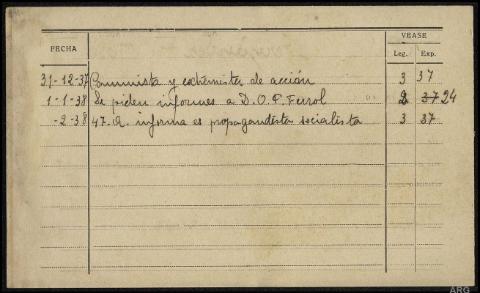 VEASE
FECHA Leg. Exp.
31-12-37 Comunista y extremista de acción 3 37
1-1-38 Se piden informes a D.O.P. Ferrol 2 37 24
-2-38 47. informa es propagandista socialista 3 37
ARG